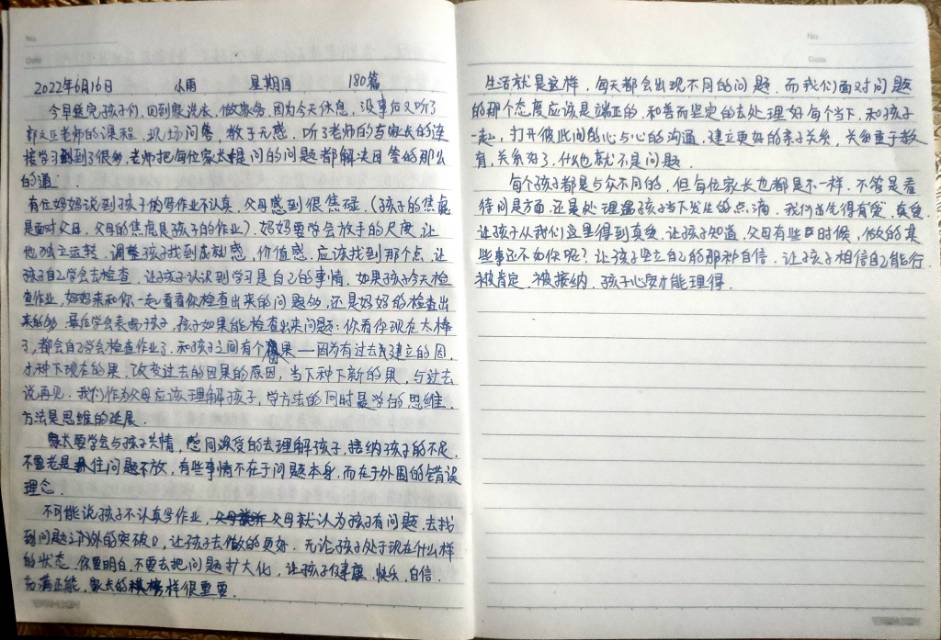 2022年6月16日 小雨 星期四 180篇
今早送完孩子们,回到家洗衣、做家务,因为今天休息,没事又听了
老师的课程,现场问答,教子无惑,听了老师的与家长的连
接学习到了很多,老师把每位家长提问的问题都解决回答的那么
的通.
有位妈妈说到孩子的写作业不认真,父母感到很焦虑.(孩子的焦虑
是面对父母,父母的焦虑是孩子的作业).妈妈要学会放手的尺度,让
他独立运转,调整孩子找到成就感,价值感,应该找到那个点,让
孩子自己学会去检查,让孩子认识到学习是自己的事情.如果孩子今天检
查作业,妈妈来和你一起看看你检查出来的问题多,还是妈妈的检查出
来的多.最后学会表扬孩子,孩子如果能检查出来问题:你看你现在太棒
了,都会自己学会检查作业了.和孩子之间有个因果——因为有过去建立的因,
才种下现在的果.改变过去的因果的原因,当下种下新的果,与过去
说再见.我们作为父母应该理解孩子,学方法的同时是学的思维,
方法是思维的延展.
家长要学会与孩子共情,感同深受的去理解孩子,接纳孩子的不足,
不要老是抓住问题不放,有些事情不在于问题本身,而在于外围的错误
理念.
不可能说孩子不认真写作业,父母就认为孩子有问题.去找
到问题以外的突破口,让孩子去做的更好.无论孩子处于现在什么样
的状态.你要明白,不要去把问题扩大化,让孩子健康、快乐、自信、
充满正能,家长的榜样很重要.
生活就是这样,每天都会出现不同的问题.而我们面对问题
的那个态度应该是端正的.和善而坚定的去处理好每个当下,和孩子
一起,打开彼此间的心与心的沟通,建立更好的亲子关系,关系重于教
育,关系好了,什么也就不是问题.
每个孩子都是与众不同的,但每位家长也都是不一样.不管是看
待问是方面,还是处理孩子当下发生的点滴.我们首先得有爱,真爱.
让孩子从我们这里得到真爱.让孩子知道,父母有些时候,做的某
些事还不为你呢?让孩子坚立自己的那种自信.让孩子相信自己能行.
被肯定.被接纳.孩子心安才能理得.